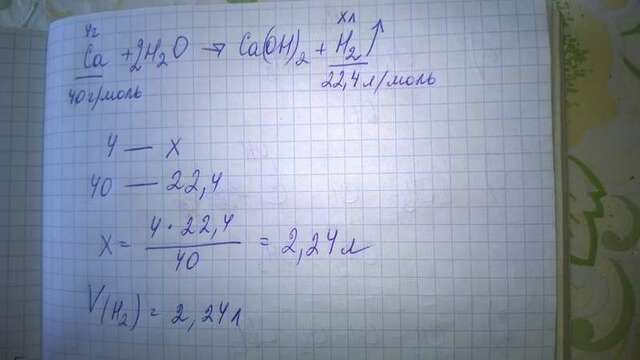 4г хл
Ca + 2H₂O → Ca(OH)₂ + H₂↑
40 г/моль 22,4 л/моль
4 — x
40 — 22,4
x = 4 · 22,4 / 40 = 2,24 л
V(H₂) = 2,24 л